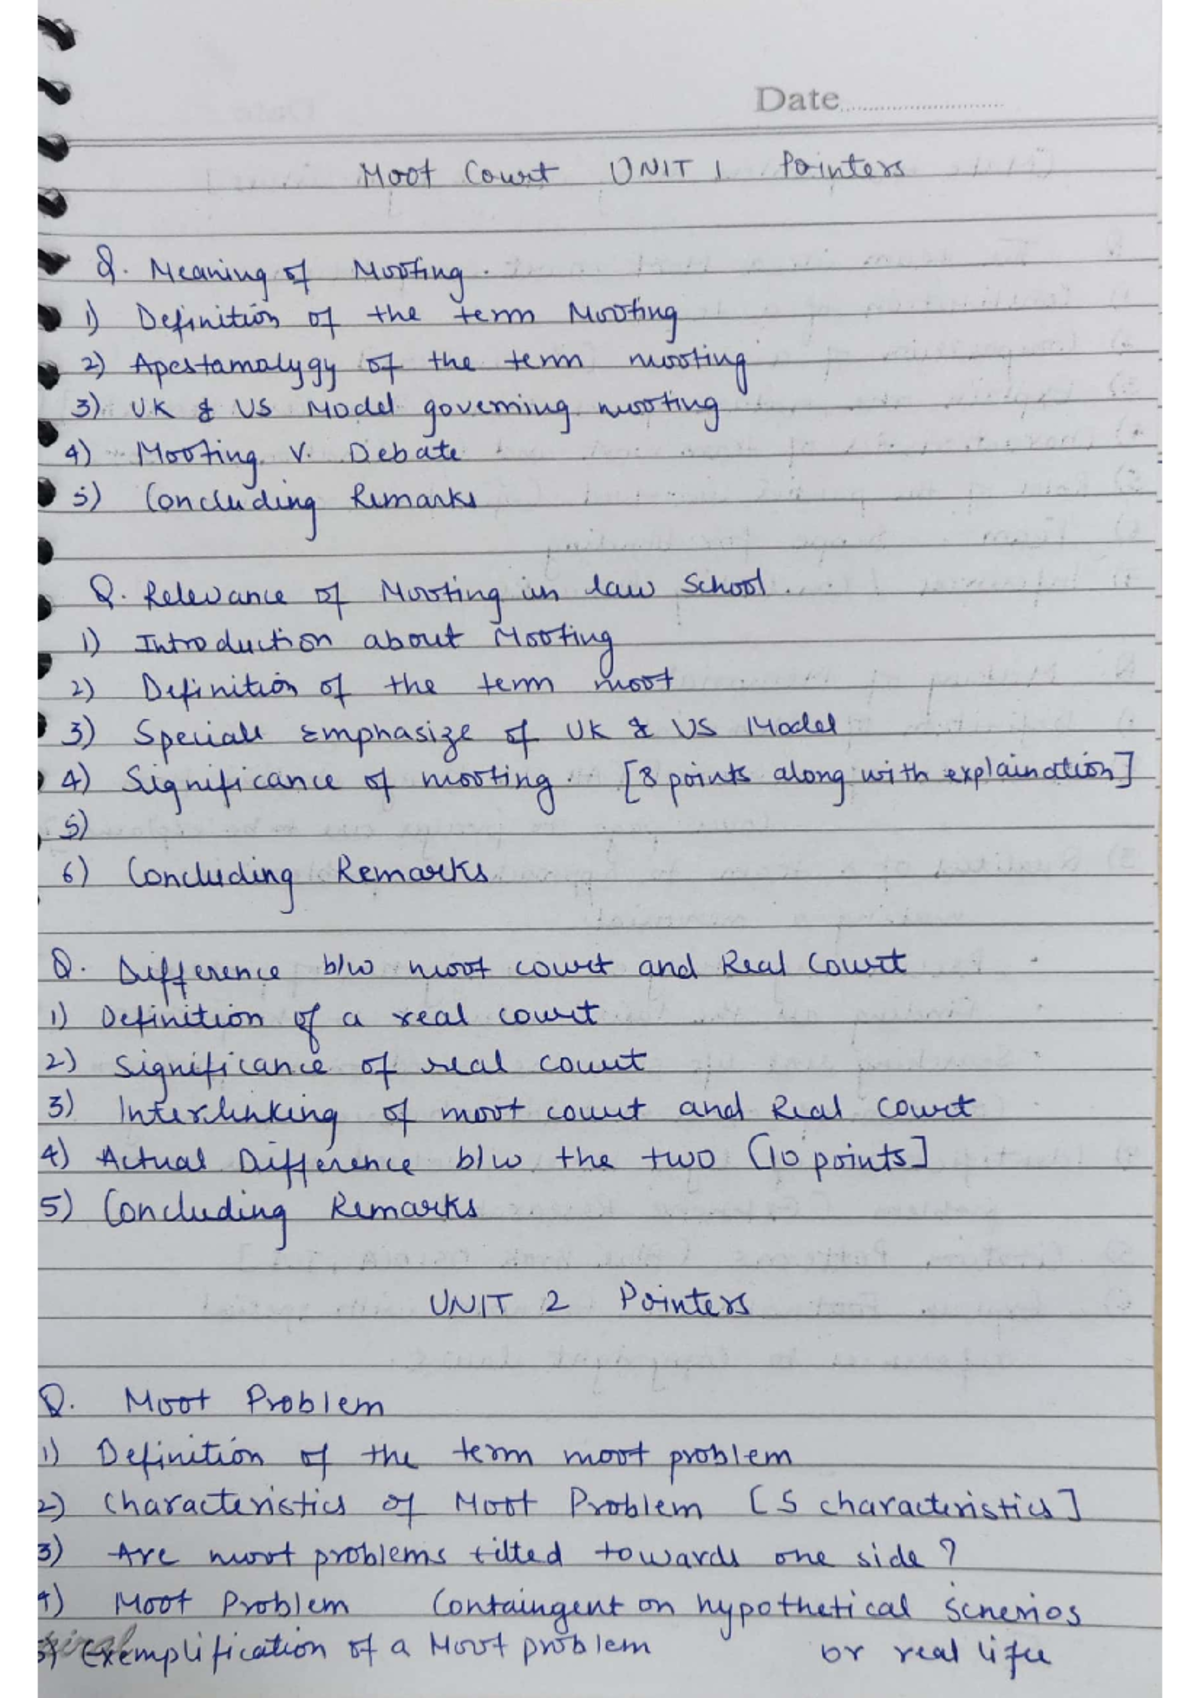 Date
Moot Court UNIT 1 Pointers
Q. Meaning of Mooting.
1) Definition of the term Mooting
2) Apestamalygy of the term mooting
3) UK & US Model governing mooting
4) Mooting V. Debate
5) Concluding Remarks
Q. Relevance of Mooting in law School.
1) Introduction about Mooting
2) Definition of the term moot
3) Speciall Emphasize of UK & US Model
4) Significance of mooting. [8 points along with explaination]
5)
6) Concluding Remarks
Q. Difference b/w moot court and Real Court
1) Definition of a real court
2) Significance of real court
3) Interlinking of moot court and Real court
4) Actual Difference b/w the two [10 points]
5) Concluding Remarks
UNIT 2 Pointers
Q. Moot Problem
1) Definition of the term moot problem
2) Characteristics of Moot Problem [5 characteristics]
3) Are moot problems tilted towards one side?
4) Moot Problem Containgent on hypothetical Scnerios
or real life
5) Exemplification of a Moot problem